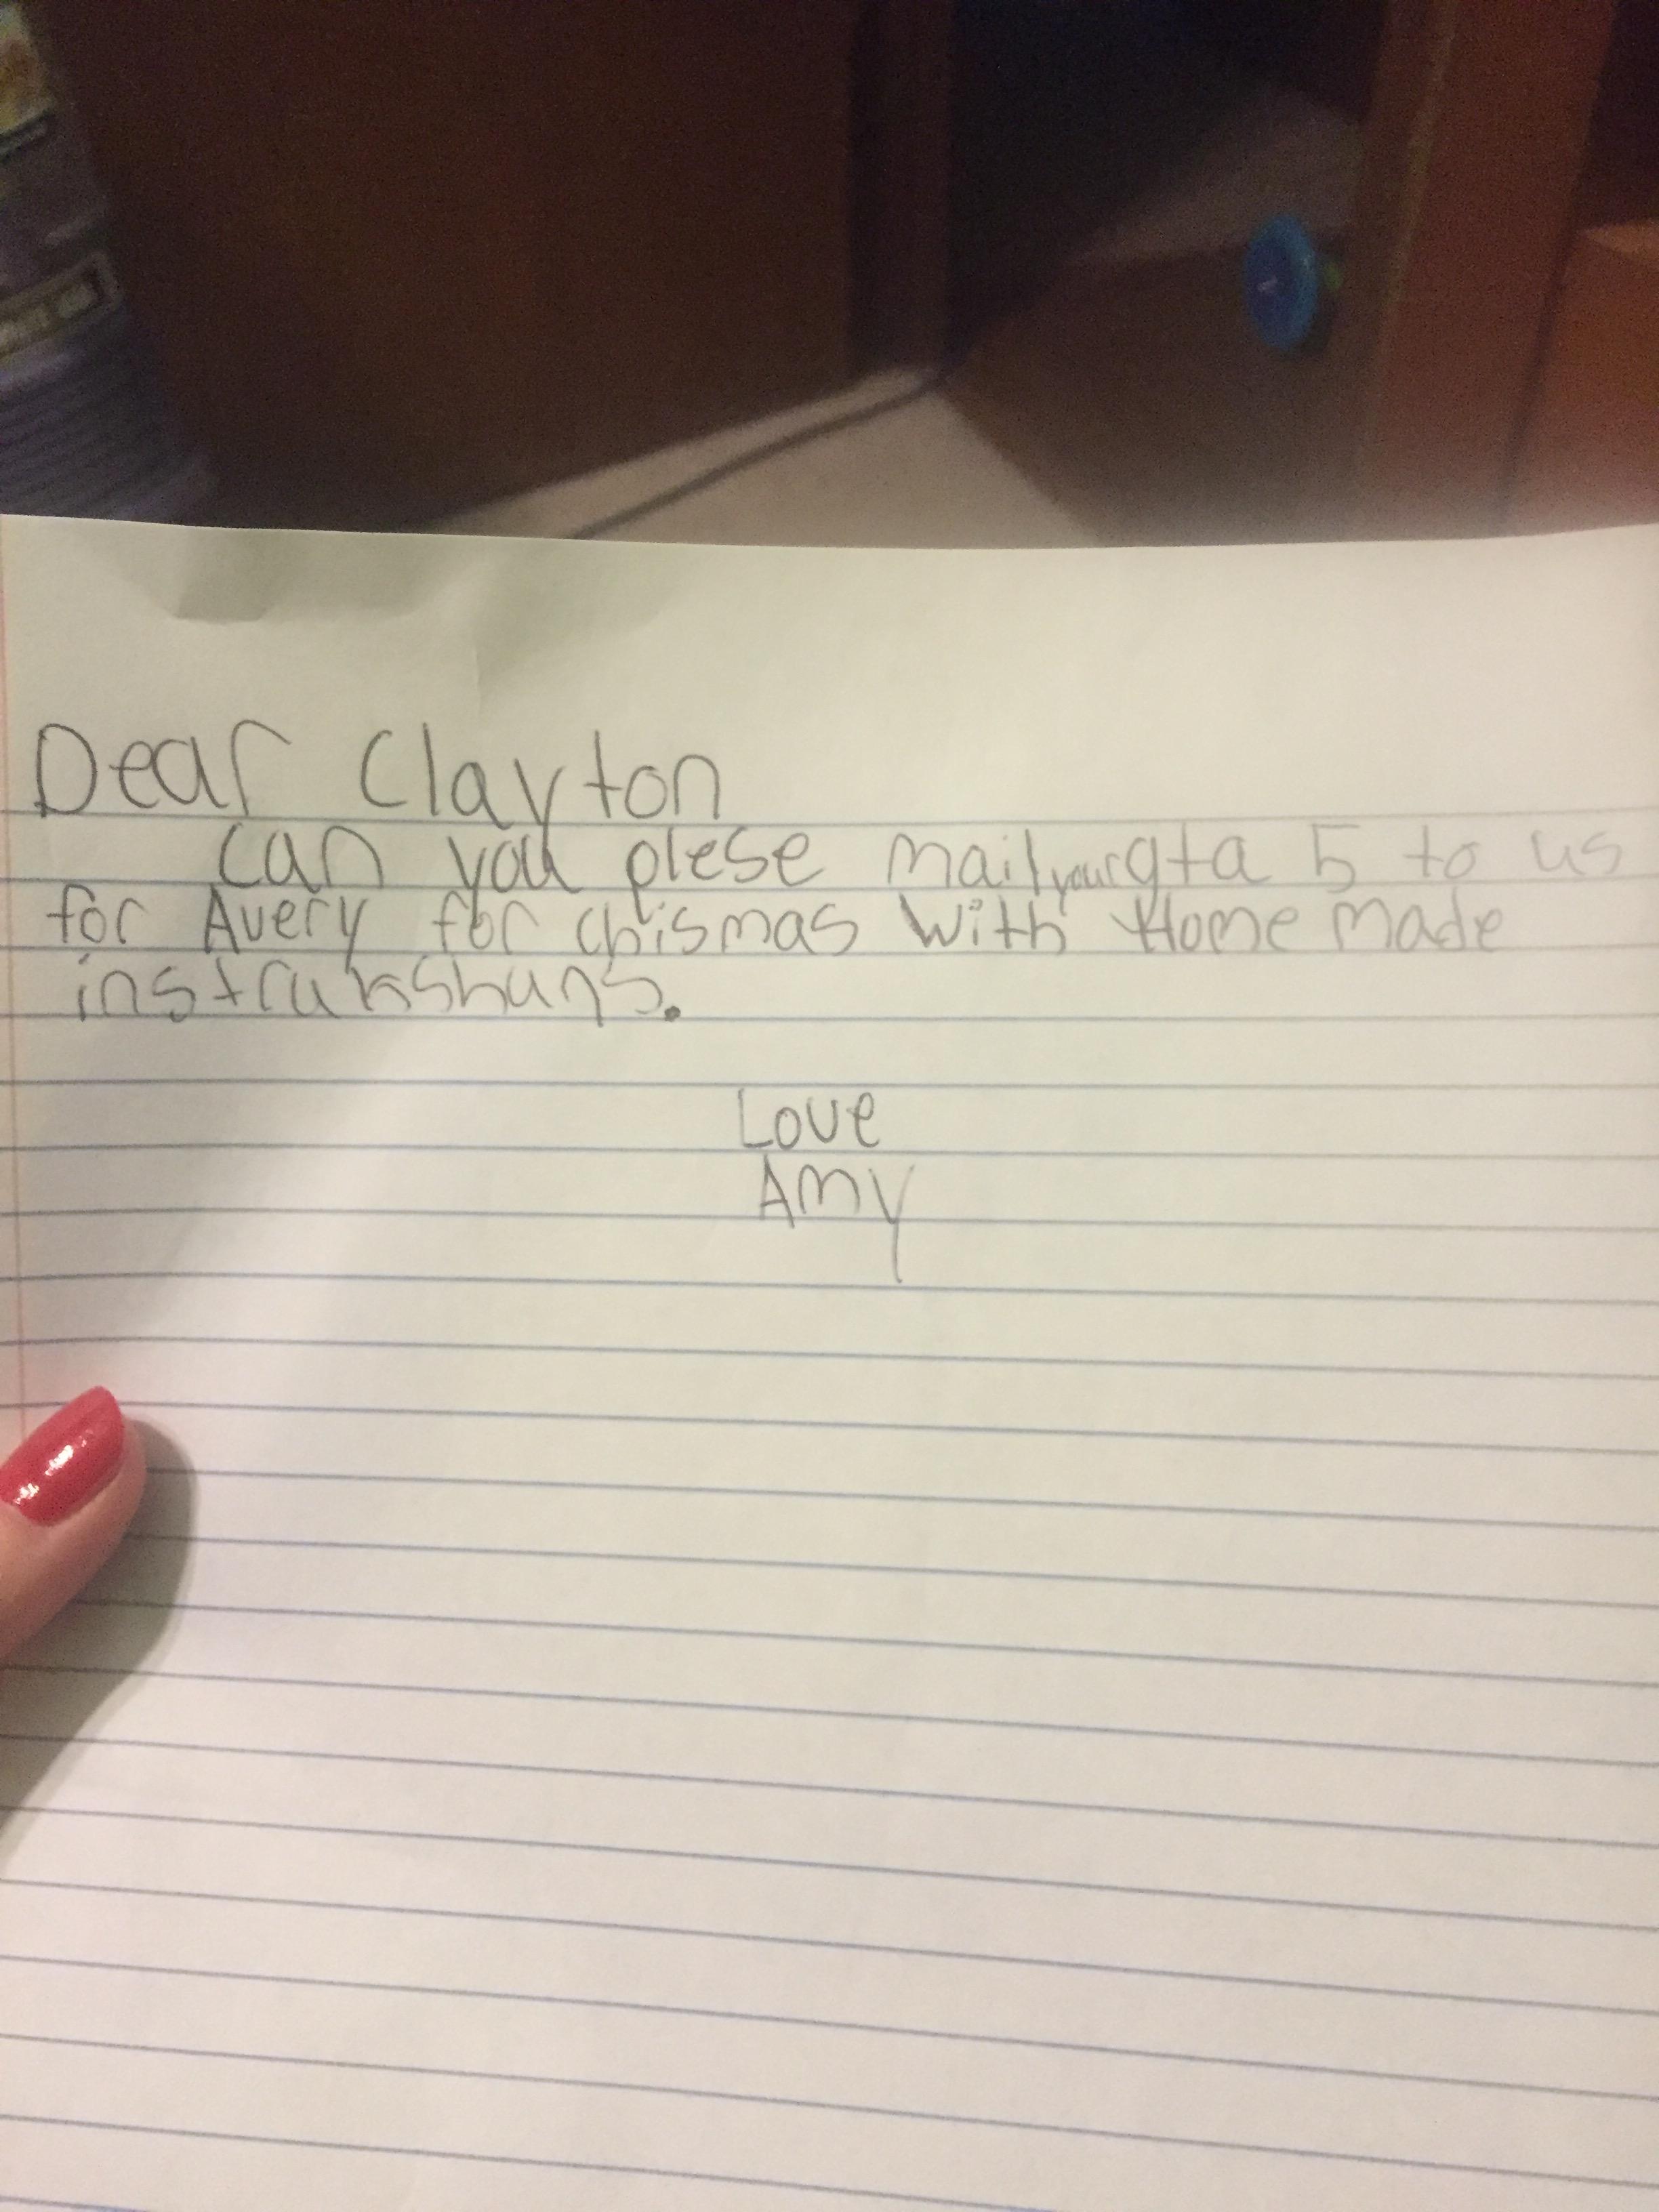 Dear Clayton
Can you plese mail your gta 5 to us
for Avery for chismas with Home made
instrukshuns.
Love
Amy